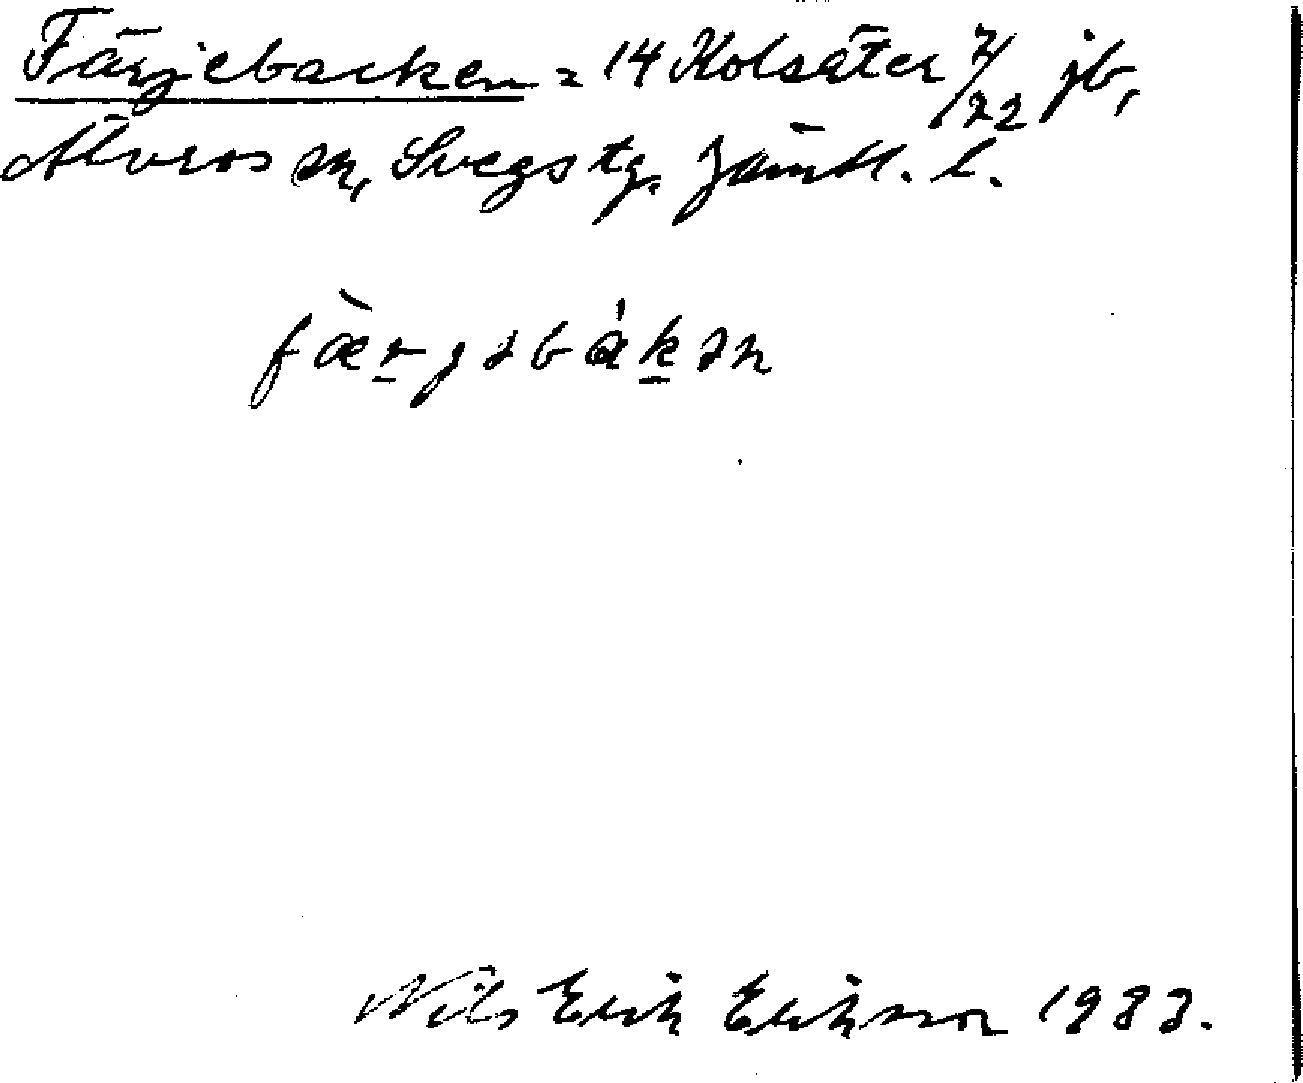 Färjebacken = 14 Kolsäter 7/22 jb,
Älvros sn, Svegs tg. Jämtl. l.
fæ̀rjəbákən
Nils Erik Erikson 1983.